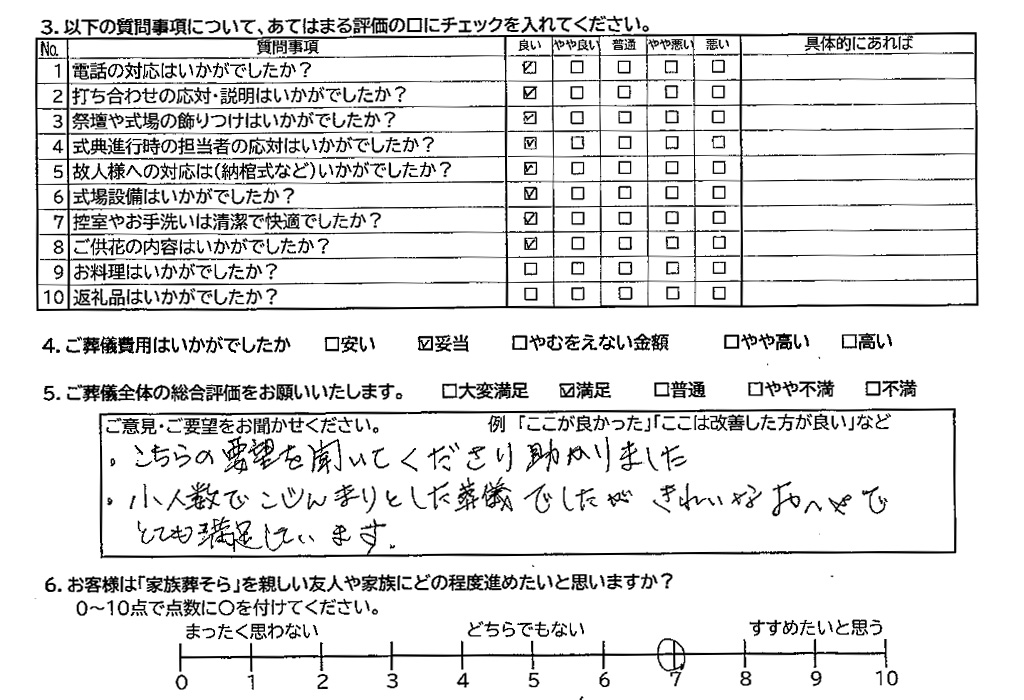 3. 以下の質問事項について、あてはまる評価の□にチェックを入れてください。
No. 質問事項 良い やや良い 普通 やや悪い 悪い 具体的にあれば
1 電話の対応はいかがでしたか？ ☑ □ □ □ □
2 打ち合わせの応対・説明はいかがでしたか？ ☑ □ □ □ □
3 祭壇や式場の飾りつけはいかがでしたか？ ☑ □ □ □ □
4 式典進行時の担当者の応対はいかがでしたか？ ☑ □ □ □ □
5 故人様への対応は(納棺式など)いかがでしたか？ ☑ □ □ □ □
6 式場設備はいかがでしたか？ ☑ □ □ □ □
7 控室やお手洗いは清潔で快適でしたか？ ☑ □ □ □ □
8 ご供花の内容はいかがでしたか？ ☑ □ □ □ □
9 お料理はいかがでしたか？ □ □ □ □ □
10 返礼品はいかがでしたか？ □ □ □ □ □
4. ご葬儀費用はいかがでしたか □安い ☑妥当 □やむをえない金額 □やや高い □高い
5. ご葬儀全体の総合評価をお願いいたします。 □大変満足 ☑満足 □普通 □やや不満 □不満
ご意見・ご要望をお聞かせください。 例 「ここが良かった」「ここは改善した方が良い」など
・こちらの要望を聞いてくださり助かりました
・小人数でこじんまりとした葬儀でしたが きれいなおへやで
とても満足しています。
6. お客様は「家族葬そら」を親しい友人や家族にどの程度進めたいと思いますか？
0～10点で点数に○を付けてください。
まったく思わない どちらでもない すすめたいと思う
0 1 2 3 4 5 6 7 8 9 10